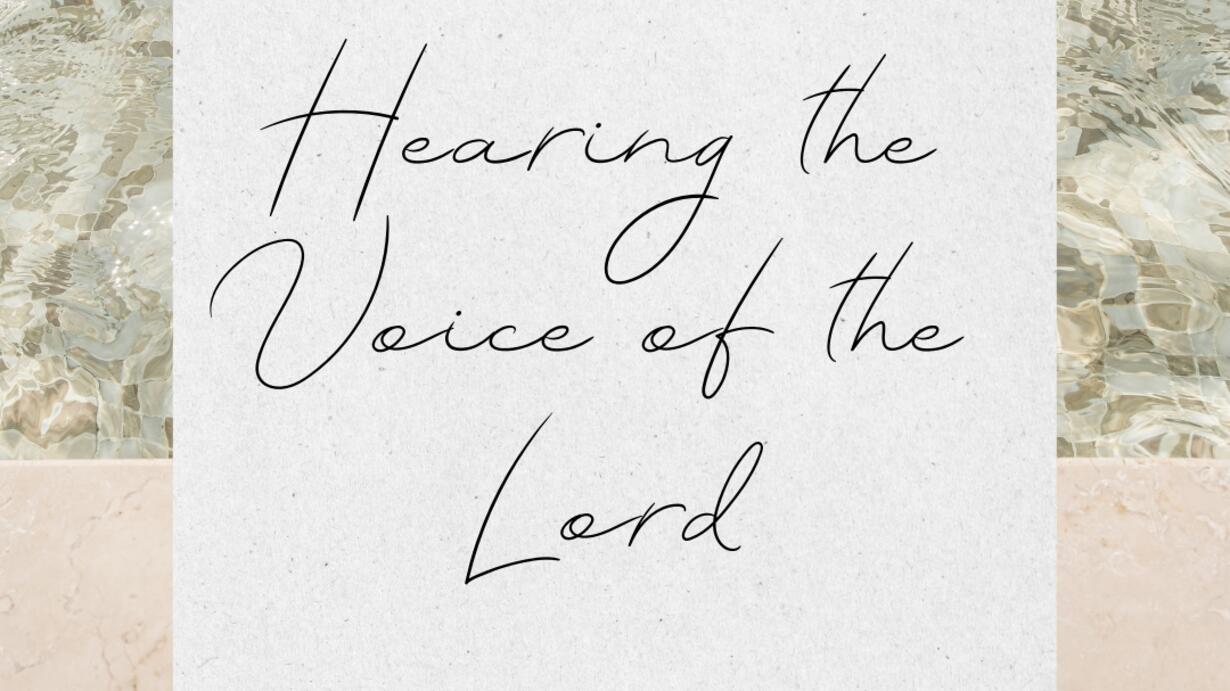 Hearing the
Voice of the
Lord